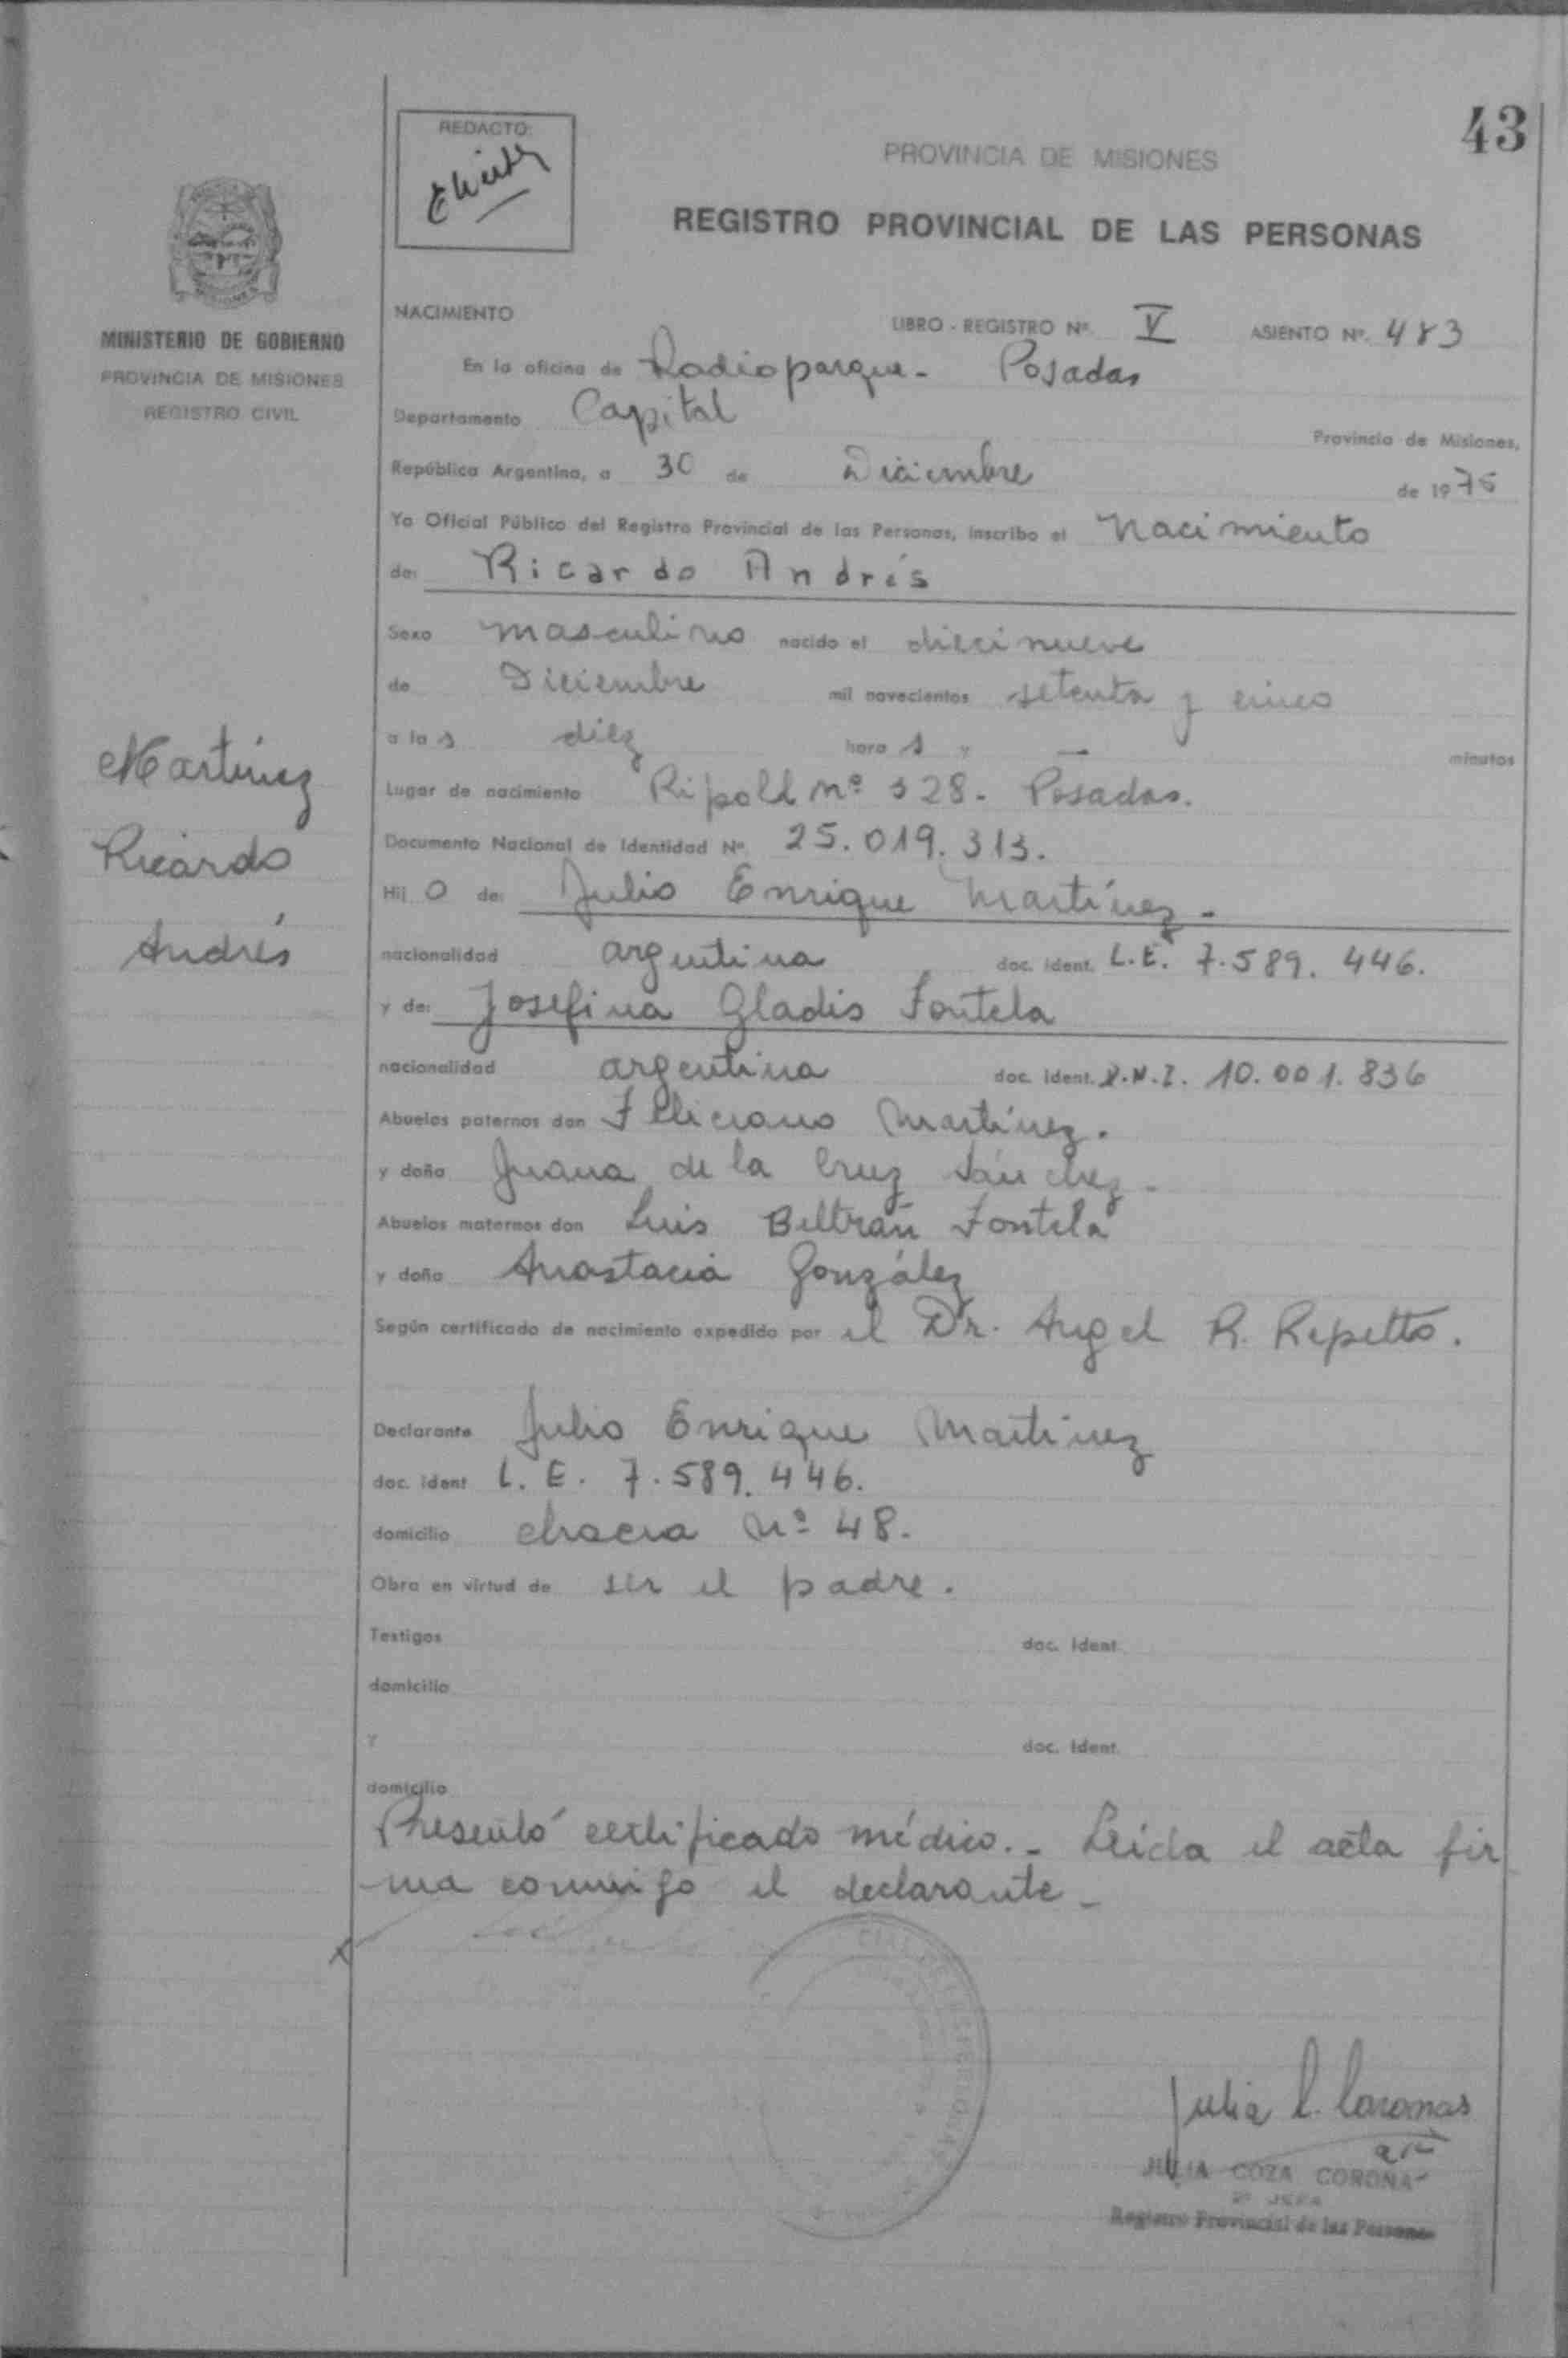 43
REDACTO:
PROVINCIA DE MISIONES
REGISTRO PROVINCIAL DE LAS PERSONAS
MINISTERIO DE GOBIERNO
PROVINCIA DE MISIONES
REGISTRO CIVIL
NACIMIENTO LIBRO - REGISTRO Nº V ASIENTO Nº. 483
En la oficina de Radioparque - Posadas
Departamento Capital Provincia de Misiones,
República Argentina, a 30 de Diciembre de 1975
Yo Oficial Público del Registro Provincial de las Personas, inscribo el Nacimiento
de: Ricardo Andrés
Sexo masculino nacido el diecinueve
de Diciembre mil novecientos setenta y cinco
a las diez horas y — minutos
Lugar de nacimiento Ripoll nº 328. Posadas.
Documento Nacional de Identidad Nº 25.019.313.
Hijo de: Julio Enrique Martínez -
nacionalidad argentina doc. ident. L.E. 7.589.446.
y de: Josefina Gladis Fontela
nacionalidad argentina doc. ident. D.N.I. 10.001.836
Abuelos paternos don Feliciano Martínez.
y doña Juana de la Cruz Sánchez -
Abuelos maternos don Luis Beltrán Fontela
y doña Anastacia González
Según certificado de nacimiento expedido por el Dr. Angel R. Repetto.
Declarante Julio Enrique Martinez
doc. ident L. E. 7.589.446.
domicilio chacra Nº 48.
Obra en virtud de ser el padre.
Testigos doc. ident.
domicilio
y doc. ident.
domicilio
Presentó certificado médico. - Leída el acta fir
ma conmigo el declarante -
Martínez
Ricardo
Andrés
JULIA COZA CORONA
2ª JEFA
Registro Provincial de las Personas